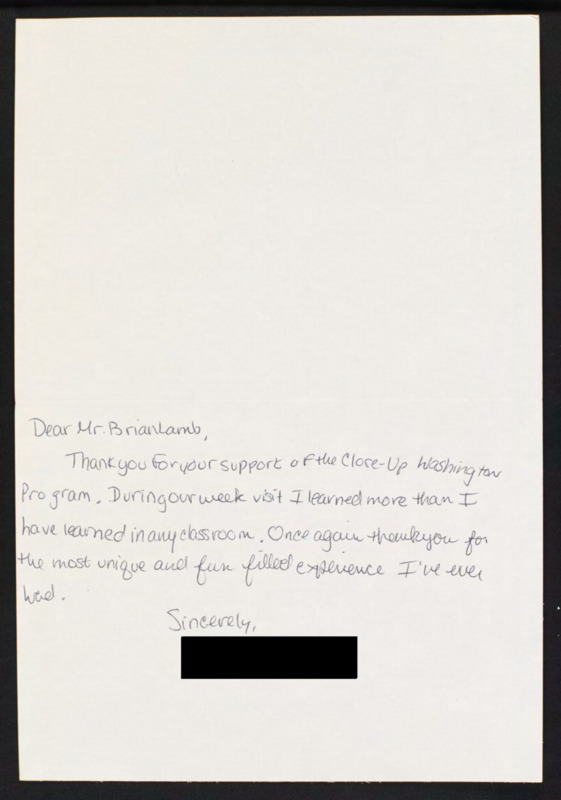 Dear Mr. Brian Lamb,
Thank you for your support of the Close-Up Washington
Program. During our week visit I learned more than I
have learned in any classroom. Once again thank you for
the most unique and fun filled experience I've ever
had.
Sincerely,